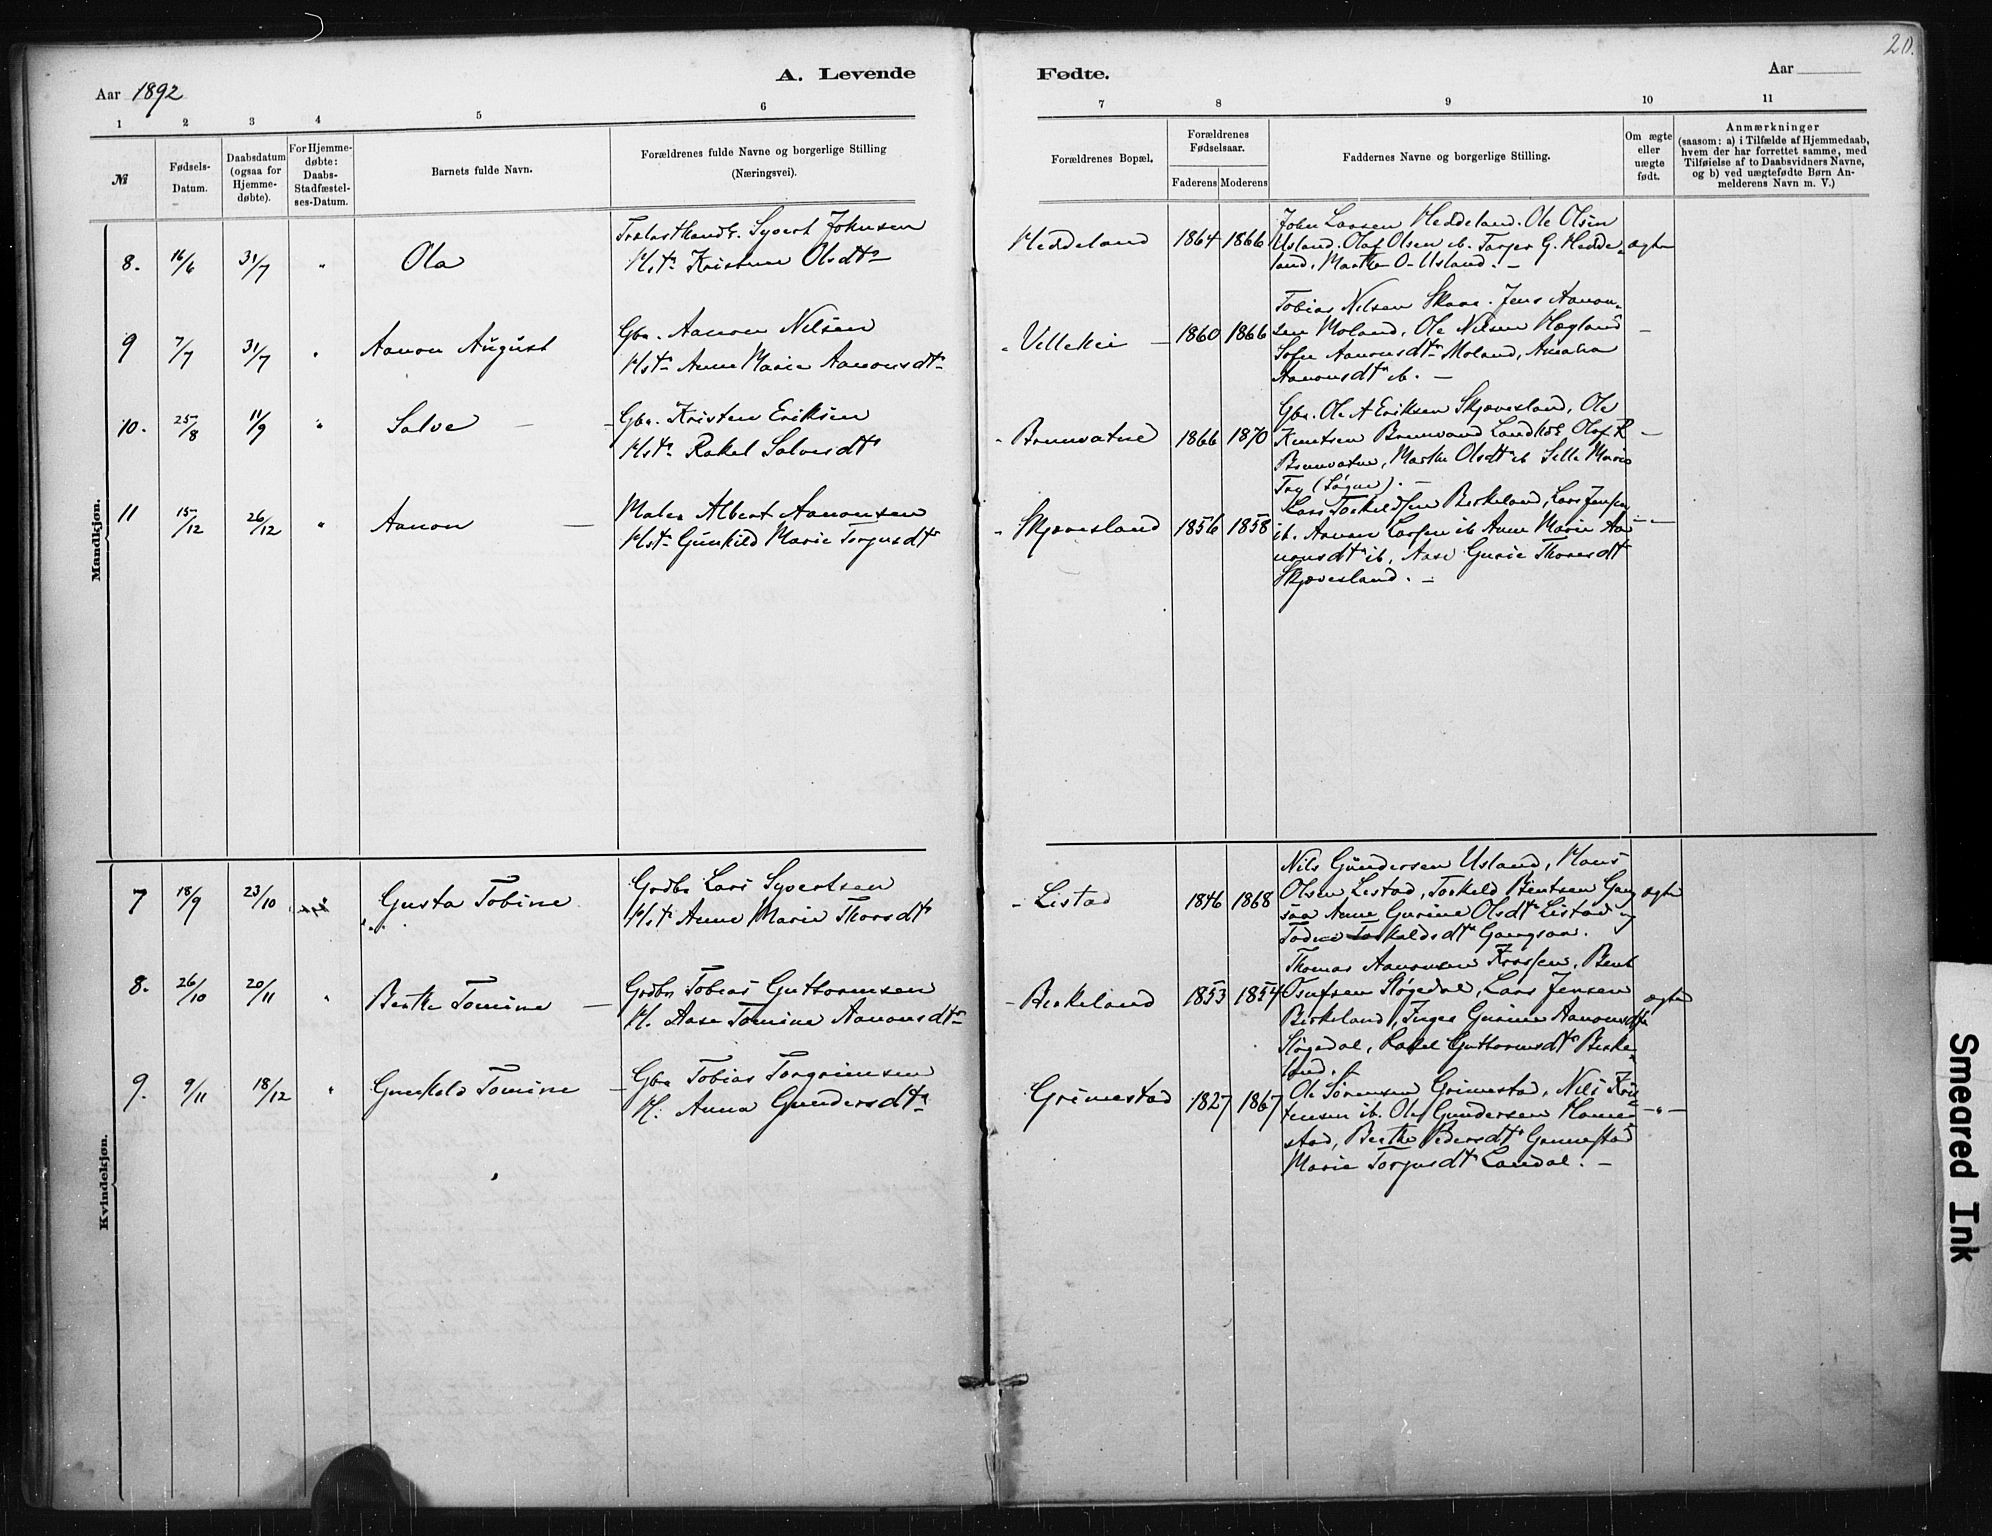 20.
A. Levende Fødte.
Aar 1892
Aar
1 2 3 4 5 6 7 8 9 10 11
№
Fødsels-Datum.
Daabsdatum (ogsaa for Hjemme-døbte).
For Hjemme-døbte: Daabs-Stadfæstel-ses-Datum.
Barnets fulde Navn.
Forældrenes fulde Navne og borgerlige Stilling
(Næringsvei).
Forældrenes Bopæl.
Forældrenes Fødselsaar.
Faderens Moderens
Faddernes Navne og borgerlige Stilling.
Om ægte eller uægte født.
Anmærkninger
(saasom: a) i Tilfælde af Hjemmedaab,
hvem der har forrettet samme, med
Tilføielse af to Daabsvidners Navne,
og b) ved uægtefødte Børn An-
melderens Navn m. V.)
Mandkjøn.
8. 16/6 31/7 " Ola
Trælasthandl. Syvert Johnsen
Hst. Kristine Olsdtr
Heddeland 1864 1866
John Larsen Heddeland. Ole Olsen
Usland. Olaf Olsen ib. Torjer G. Hedde-
land, Marthe O. Usland. –
ægte
9 7/7 31/7 " Aanon August
Gbr. Aanon Nilsen
Hst. Anne Marie Aanonsdtr
Vellekei 1860 1866
Tobias Nilsen Skaar. Jens Aanon-
sen Moland, Ole Nilsen Hægland
Sofie Aanonsdtr Moland, Amalia
Aanonsdtr ib. –
–
10. 25/8 11/9 " Salve –
Gbr. Kristen Eriksen
Hst. Rakel Salvesdtr
Brunvatne 1866 1870
Gbr. Ole A Eriksen Skjævesland, Ole
Knutsen Brunvand Landhdl Olaf K
Brunvatne, Marthe Olsdtr ib Sille Marie
Try (Søgne). –
–
11 15/12 26/12 " Aanon –
Maler Albert Aanonsen
Hst. Gunhild Marie Torjusdtr
Skjævesland 1856 1858
Lars Torkildsen Birkeland, Lars Jensen
ib. Aanon Larsen ib Anne Marie Aa-
nonsdtr ib, Aase Gurie Thoresdtr
Skjævesland. –
– " –
Kvindekjøn.
7 18/9 23/10 Gusta Tobine
Grdbr Lars Syvertsen
Hst. Anne Marie Thorsdtr
Listad 1846 1868
Nils Gundersen Usland, Hans
Olsen Listad, Torkeld Bentsen Gang-
saa Anne Gurine Olsdtr Listad og
Torkeldsdtr Gangsaa.
ægte
8. 26/10 20/11 " Berthe Tomine –
Grdbr Tobias Guttormsen
H. Aase Tomine Aanonsdtr
Birkeland 1853 1854
Thomas Aanonsen Fossen, Bent
Osufsen Støgedal, Lars Jensen
Birkeland, Inger Gurine Aanonsdtr
Støgedal, Rakel Guttormsdtr Birke-
land. –
ægte
9. 9/11 18/12 " Gunhild Tomine –
Gbr Tobias Torgrimsen
H. Anna Gundersdtr
Grimestad 1827 1867
Ole Sørensen Grimestad, Nils Kris-
tensen ib. Ole Gundersen Home-
stad, Berthe Pedersdtr Grimestad
Marie Torjusdtr Landal. –
– " –
Smeared Ink